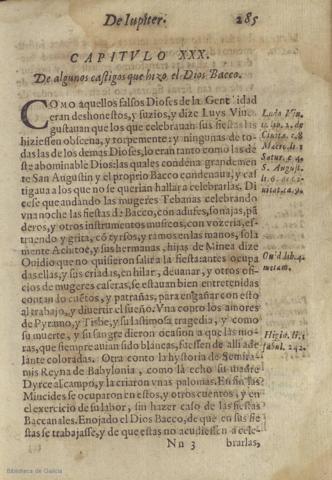 De Iupiter. 285
CAPITVLO XXX.
De algunos castigos que hizo el Dios Bacco.
COMO aquellos falsos Dioses de la Gentilidad
eran deshonestos, y suzios, y dize Luys Viu.
gustauan que los que celebrauan sus fiestas las
hiziessen obscena, y torpemente; y ningunas de to-
das las de los demas Dioses, lo eran tanto como las de
ste abominable Dios: las quales condena grandemen
te San Augustin y el proprio Bacco condenaua, y cas
tigaua a los que no se querian hallar a celebrarlas. Di
cese que andando las mugeres Tebanas celebrando
vna noche las fiestas de Bacco, con adufes, sonajas, pã
deros, y otros instrumentos musicos, con vozeria, es-
truendo y grita, cõ tyrsos, y ramos en las manos, sola
mente Alcitoe, y sus hermanas, hijas de Minea dize
Ouidio que no quisieron salir a la fiesta: antes ocupa
das ellas, y sus criadas, en hilar, deuanar, y otros ofi-
cios de mugeres caseras, se estauan bien entretenidas
contando cuẽtos, y patrañas, para engañar con esto
al trabajo, y diuertir el sueño. Vna conto los amores
de Pyramo, y Tisbe, y su lastimosa tragedia, y como
su muerte, y su sangre dieron ocasion a que las mo-
ras, que siempre auian sido blancas, fuessen de alli ade
lante coloradas. Otra conto la hystoria de Semira-
mis Reyna de Babylonia, como la echo su madre
Dyrce al campo, y la criaron vnas palomas. En fin las
Mineides se ocuparon en estos, y otros cuentos, y en
el exercicio de su labor, sin hazer caso de las fiestas
Baccanales. Enojado el Dios Bacco, de que en sus fie
stas se trabajasse, y de que estas no acudiessen a cele-
Nn 3 brarlas,
Ludo. Viu.
lib. 2. de
Ciuita. c. 8
Macro. li. 1
Satur. c.
S. August.
li. 6. de Ci-
uitat. ca. 9.
Ouid. lib. 4.
metam.
Higin. li. 1
fabul. 242.
Biblioteca de Galicia